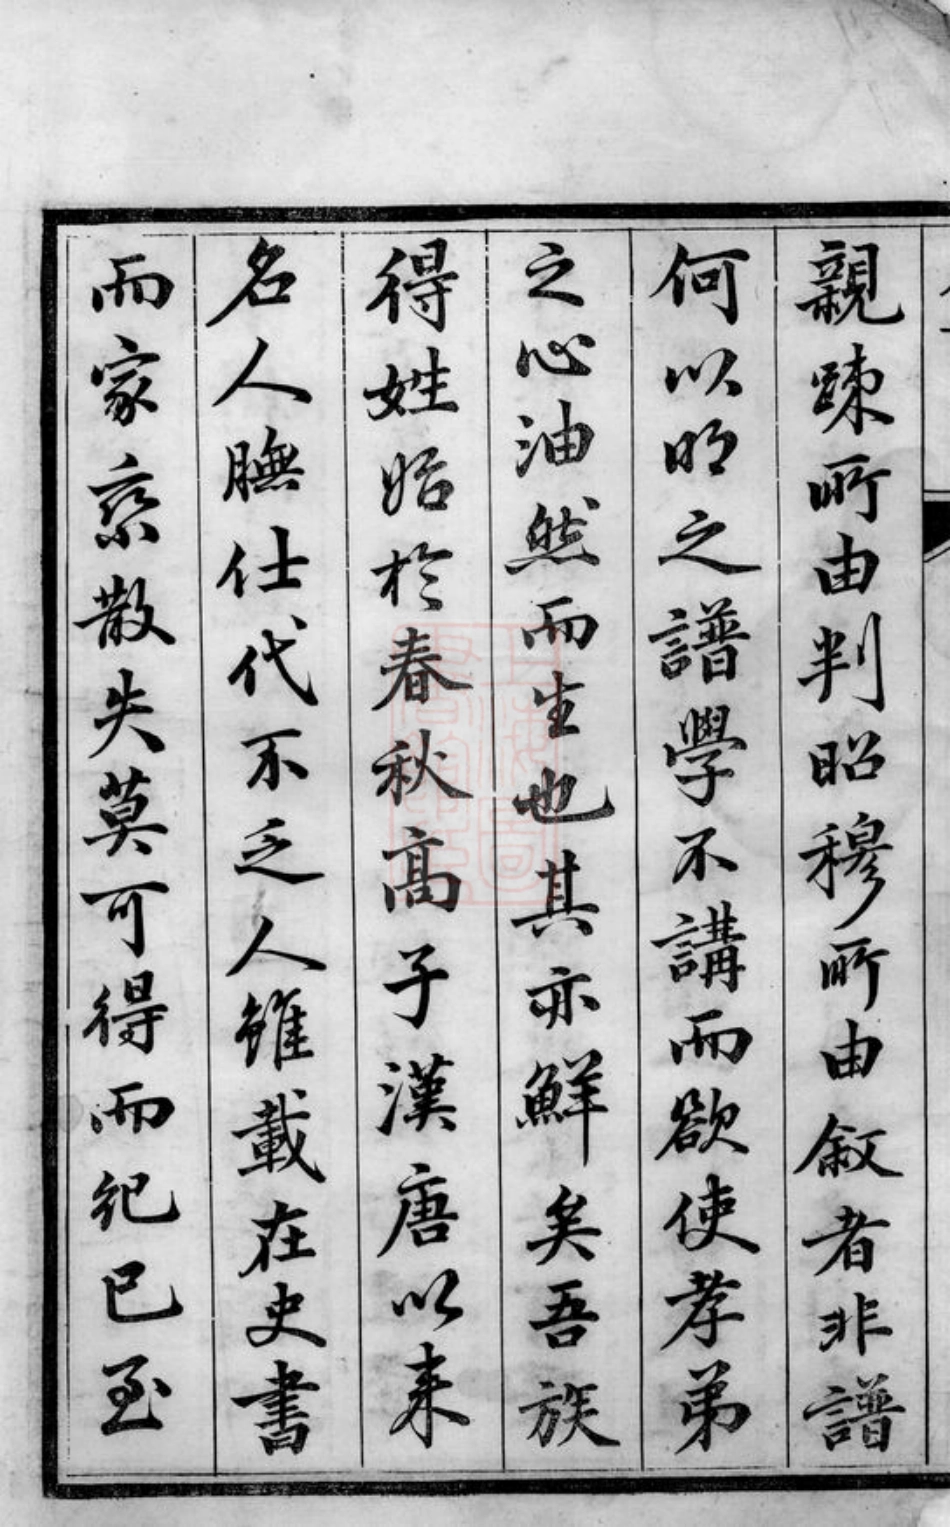 親踈所由判昭穆所由叙者非譜
何以明之譜學不講而欲使孝弟
之心油然而生也其亦鮮矣吾族
得姓始於春秋高子漢唐以来
名人膴仕代不乏人雖載在史書
而家乘散失莫可得而紀已至